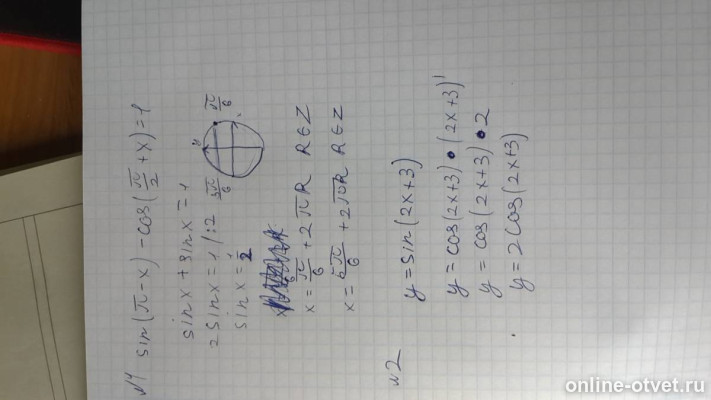 №1 sin(π-x) - cos(π/2 + x) = 1
sin x + sin x = 1
2 sin x = 1 /:2
sin x = 1/2
y
5π/6
π/6
x = π/6 + 2πR R∈Z
x = 5π/6 + 2πR R∈Z
№2
y = sin(2x+3)
y = cos(2x+3) • (2x+3)'
y = cos(2x+3) • 2
y = 2cos(2x+3)
online-otvet.ru